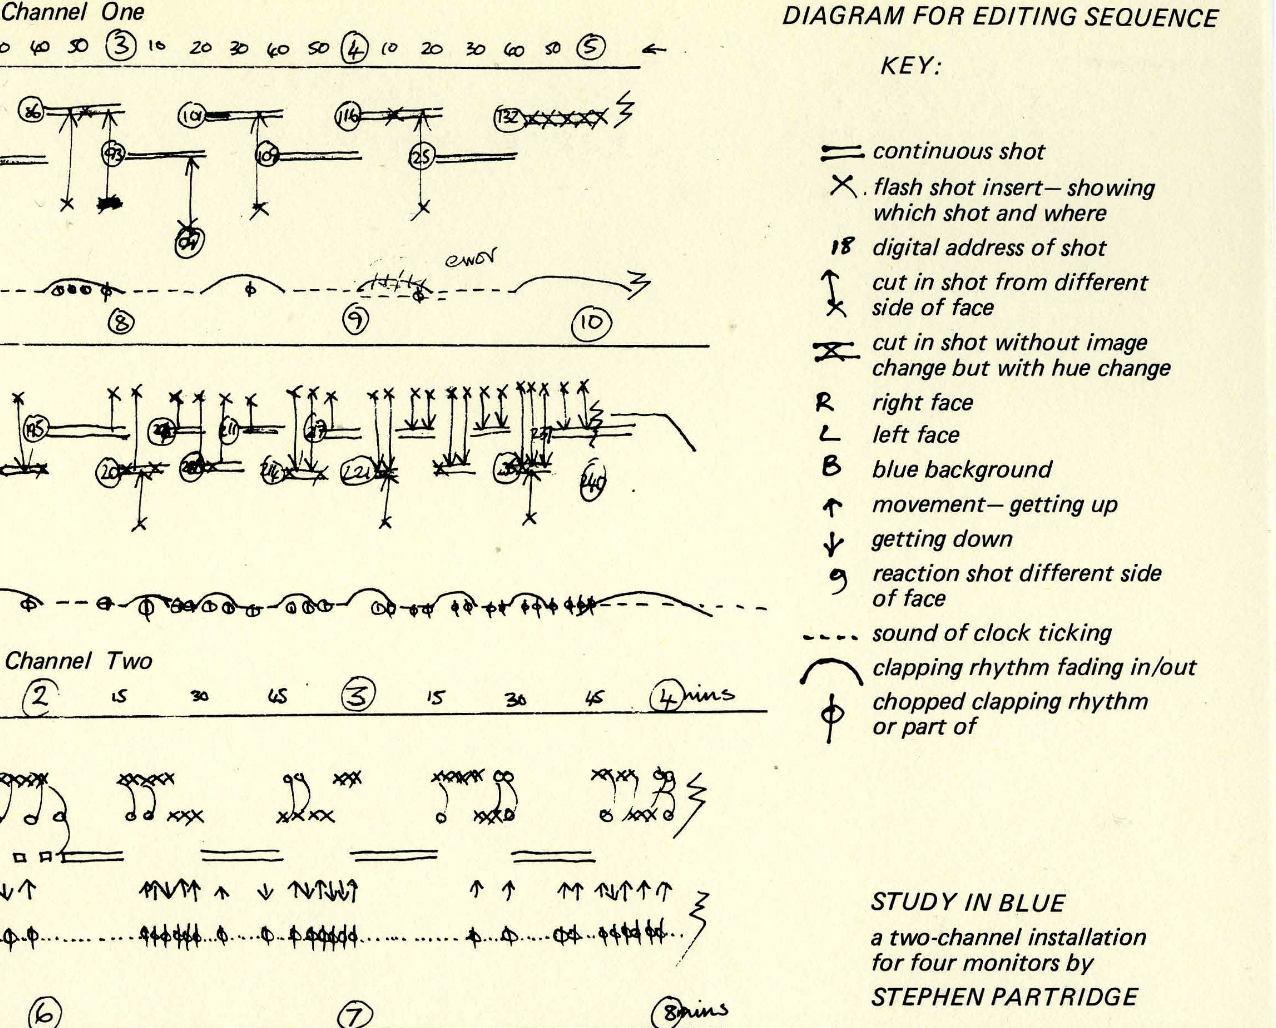 Channel One
DIAGRAM FOR EDITING SEQUENCE
40 50 3 10 20 30 40 50 4 10 20 30 40 50 5 ←
KEY:
86 101 116 132
93 109 125
continuous shot
flash shot insert— showing
which shot and where
18 digital address of shot
error
cut in shot from different
side of face
8 9 10
cut in shot without image
change but with hue change
R right face
L left face
B blue background
movement— getting up
getting down
reaction shot different side
of face
195 211 217 237
20 221
240
sound of clock ticking
clapping rhythm fading in/out
chopped clapping rhythm
or part of
Channel Two
2 15 30 45 3 15 30 45 4 mins
STUDY IN BLUE
a two-channel installation
for four monitors by
STEPHEN PARTRIDGE
6 7 8 mins